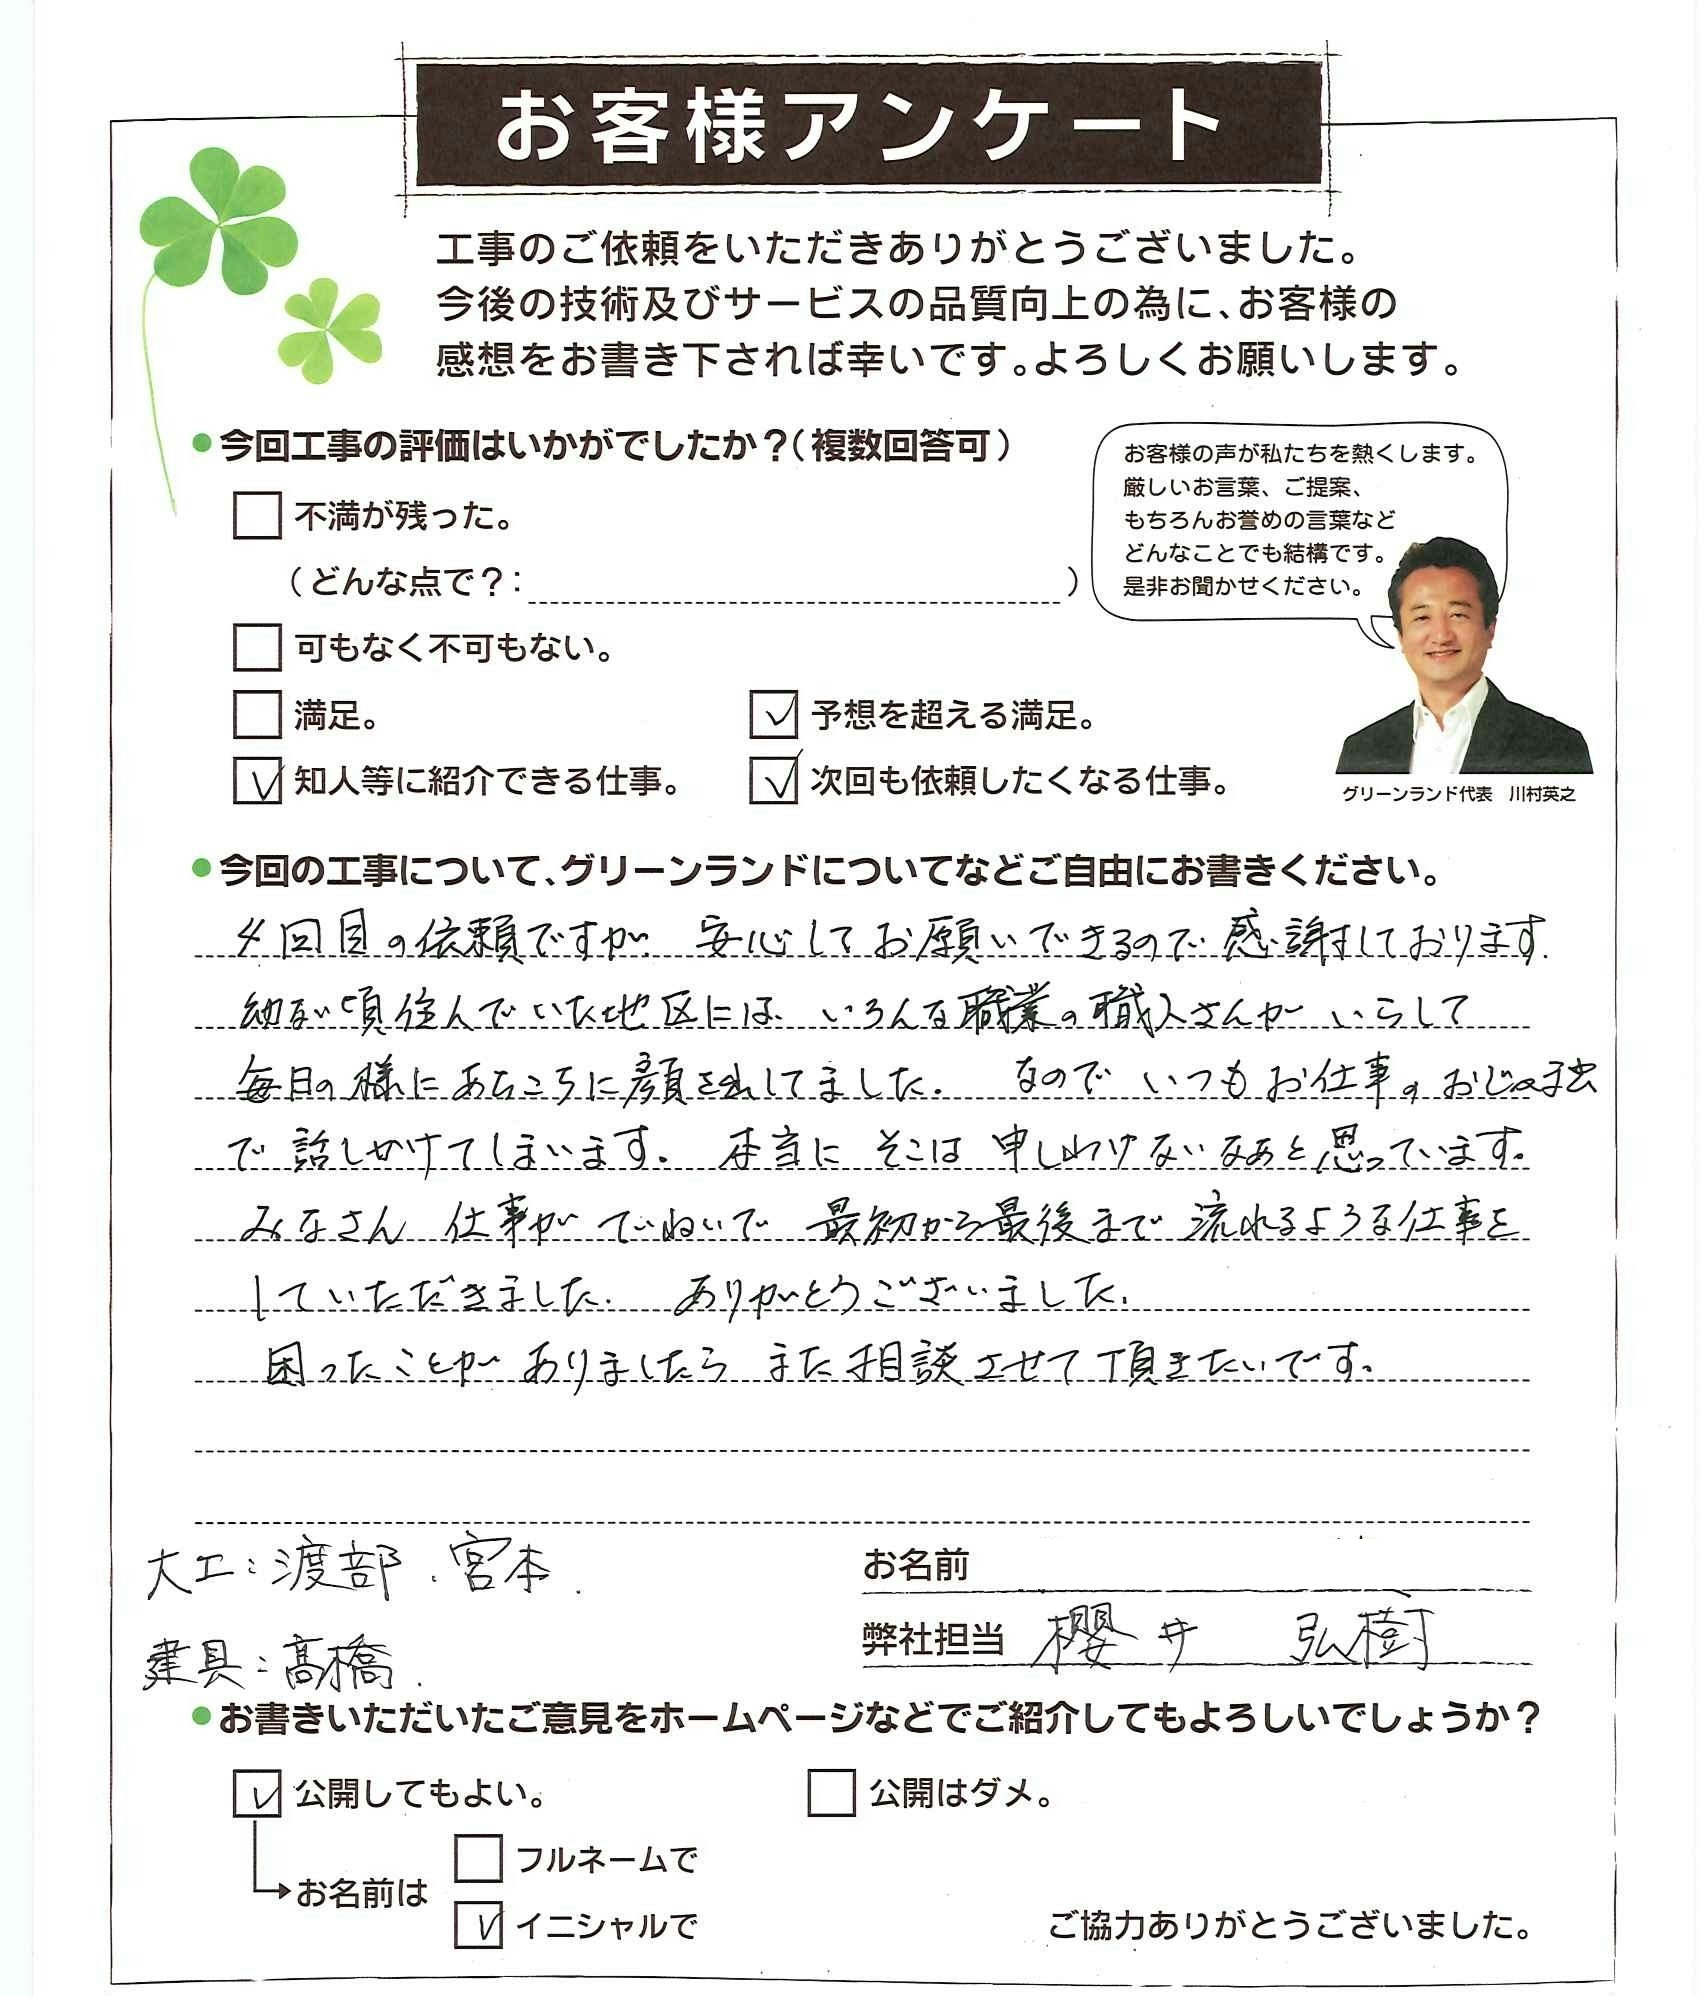 お客様アンケート
工事のご依頼をいただきありがとうございました。
今後の技術及びサービスの品質向上の為に、お客様の
感想をお書き下されば幸いです。よろしくお願いします。
●今回工事の評価はいかがでしたか?(複数回答可)
不満が残った。
(どんな点で?: )
可もなく不可もない。
満足。
予想を超える満足。
知人等に紹介できる仕事。
次回も依頼したくなる仕事。
お客様の声が私たちを熱くします。
厳しいお言葉、ご提案、
もちろんお誉めの言葉など
どんなことでも結構です。
是非お聞かせください。
グリーンランド代表 川村英之
●今回の工事について、グリーンランドについてなどご自由にお書きください。
4回目の依頼ですが、安心してお願いできるので感謝しております.
幼ない頃住んでいた地区には、いろんな職業の職人さんが いらして
毎日の様にあちこちに顔を出してました. なのでいつもお仕事のおじゃま虫
で話しかけてしまいます。 本当に そこは 申しわけないなぁと思っています。
みなさん 仕事が ていねいで 最初から最後まで 流れるような仕事を
していただきました. ありがとうございました.
困ったことが ありましたら また相談させて頂きたいです。
大工:渡部.宮本.
建具:髙橋.
お名前
弊社担当 櫻井 弘樹
●お書きいただいたご意見をホームページなどでご紹介してもよろしいでしょうか?
公開してもよい。
公開はダメ。
お名前は
フルネームで
イニシャルで
ご協力ありがとうございました。